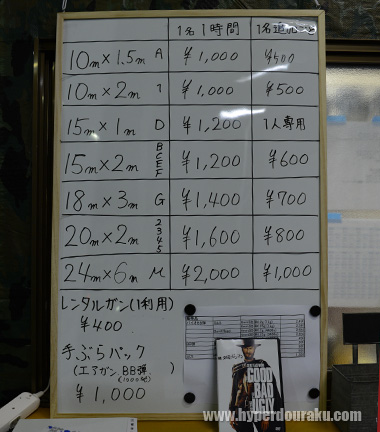 1名1時間 1名追加
10m×1.5m A ¥1,000 ¥500
10m×2m 1 ¥1,000 ¥500
15m×1m D ¥1,200 1人専用
15m×2m B C E F ¥1,200 ¥600
18m×3m G ¥1,400 ¥700
20m×2m 2 3 4 5 ¥1,600 ¥800
24m×6m M ¥2,000 ¥1,000
レンタルガン(1利用)
¥400
手ぶらパック
(エアガン、BB弾 )
¥1,000
GOOD
BAD
UGLY
DVD
www.hyperdouraku.com